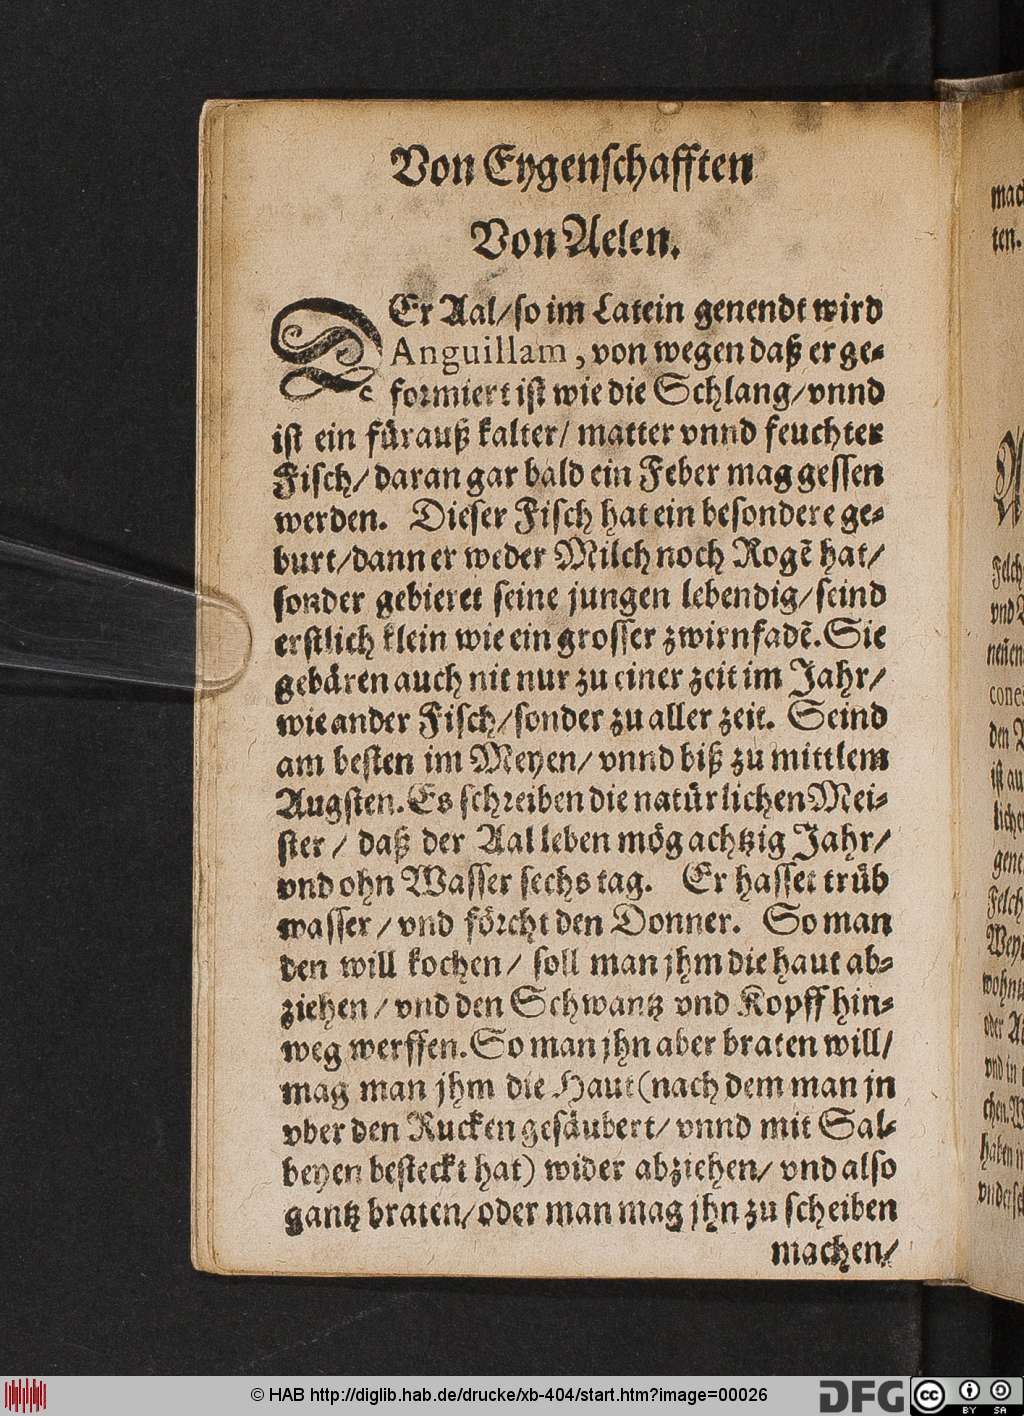 Von Eygenschafften
Von Aelen.
DEr Aal/so im Latein genendt wird
Anguillam, von wegen daß er ge-
formiert ist wie die Schlang/vnnd
ist ein fürauß kalter/ matter vnnd feuchter
Fisch/daran gar bald ein Feber mag gessen
werden. Dieser Fisch hat ein besondere ge-
burt/dann er weder Milch noch Rogē hat/
sonder gebieret seine jungen lebendig/seind
erstlich klein wie ein grosser zwirnfadē. Sie
gebären auch nit nur zu einer zeit im Jahr/
wie ander Fisch/sonder zu aller zeit. Seind
am besten im Meyen/ vnnd biß zu mittlem
Augsten. Es schreiben die natürlichen Mei-
ster/ daß der Aal leben mög achtzig Jahr/
vnd ohn Wasser sechs tag. Er hasset trüb
wasser/vnd förcht den Donner. So man
den will kochen/ soll man jhm die haut ab-
ziehen/vnd den Schwantz vnd Kopff hin-
weg werffen. So man jhn aber braten will/
mag man jhm die Haut (nach dem man jn
vber den Rucken gesäubert/vnnd mit Sal-
beyen besteckt hat) wider abziehen/vnd also
gantz braten/oder man mag jhn zu scheiben
machen/
mach
ten.
Felch
vnd
neuen
cone
den
ist au
liche
gene
Felch
Wey
wohn
oder
vnd in
chen.
haben
© HAB http://diglib.hab.de/drucke/xb-404/start.htm?image=00026
DFG
cc
BY SA